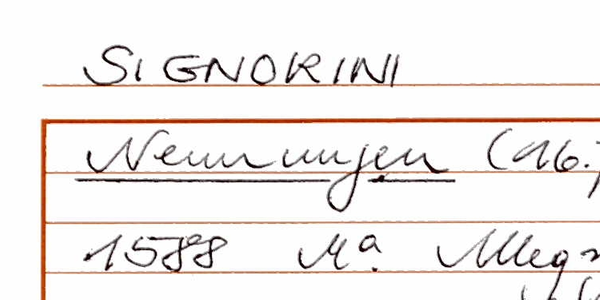 SIGNORINI
Nennungen (16.
1588 Ma. Alleg